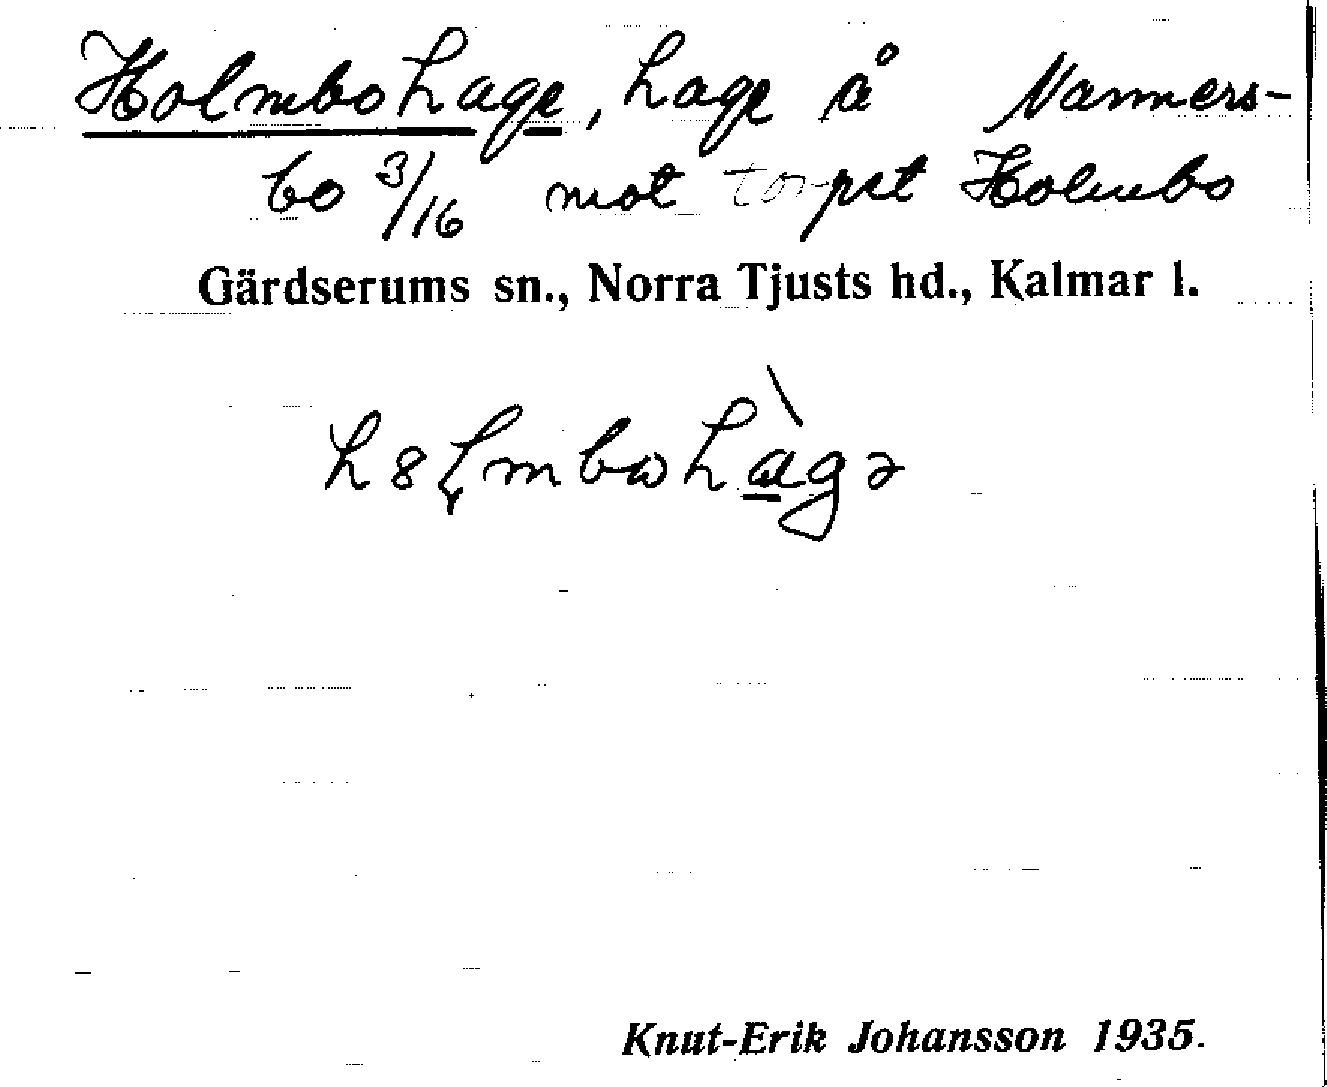 Holmbohage, hage å Nanners-
bo 3/16 mot torpet Holmbo
Gärdserums sn., Norra Tjusts hd., Kalmar l.
Knut-Erik Johansson 1935.